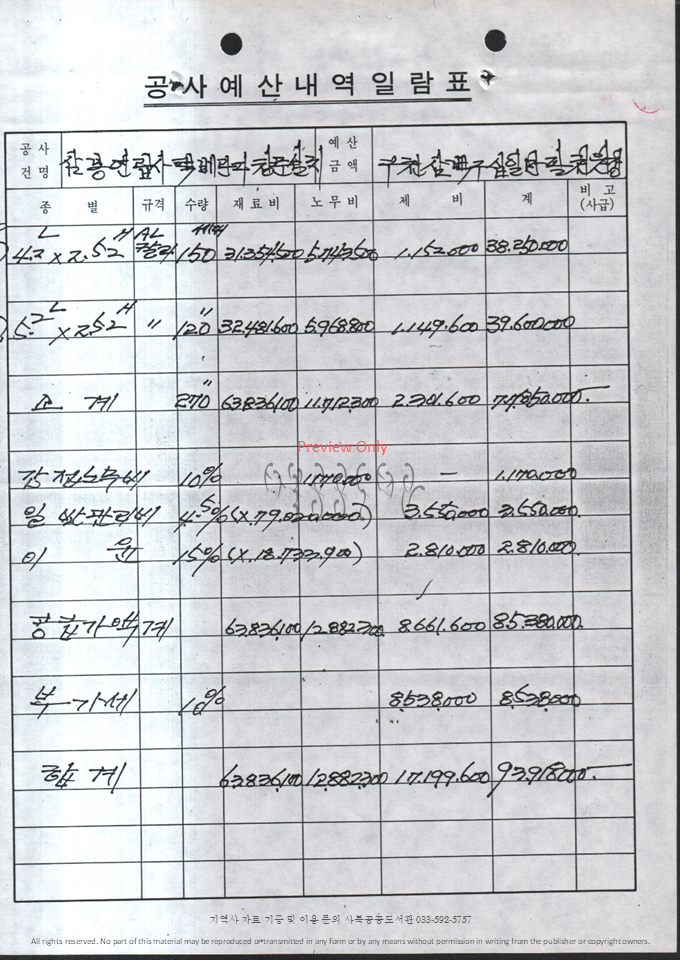 공사예산내역일람표
공사건명 삼풍연립사택 예산금액
종 별 규격 수량 재료비 노무비 제 비 계 비 고 (사급)
4.2ᴸ x 2.52ᴴ AL 150 31.354.500 5.743.500 1.152.000 38.250.000
5.2ᴸ x 2.52ᴴ " 120" 32.481.600 5.968.800 1.149.600 39.600.000
소 계 270" 63.836.100 11.712.300 2.301.600 77.850.000.-
간접노무비 10% 1.170.000 - 1.170.000
일반관리비 4.5% 3.550.000 3.550.000
이 윤 15% 2.810.000 2.810.000
공급가액계 63.836.100 12.882.300 8.661.600 85.380.000.
부가세 10% 8.538.000 8.538.000
합 계 63.836.100 12.882.300 17.199.600 93.918.000.-
Preview Only
지역사 자료 기증 및 이용 문의 사북공공도서관 033-592-5757
All rights reserved. No part of this material may be reproduced or transmitted in any form or by any means without permission in writing from the publisher or copyright owners.